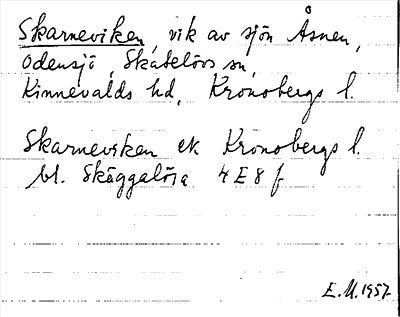 Skarneviken, vik av sjön Åsnen,
Odensjö, Skatelövs sn,
Kinnevalds hd, Kronobergs l.
Skarneviken ek Kronobergs l.
bl. Skäggalösa 4E8f
E.M. 1957